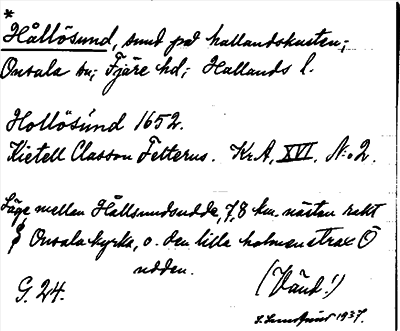 *
Hållösund, sund på hallandskusten;
Onsala sn; Fjäre hd; Hallands l.
Hollösund 1652.
Kietell Classon Felterus. Kr.A, XVI. N:o 2.
Läge mellan Hållsundsudde, 7,8 km. nästan rakt
S Onsala kyrka, o. den lilla holmen strax Ö
udden.
G. 24. (Vänd!)
1937.